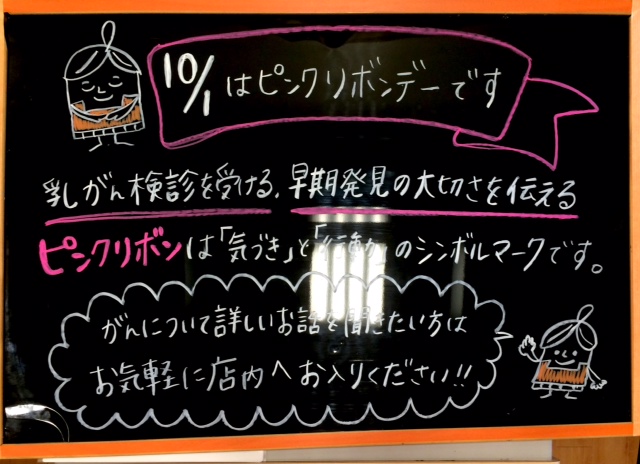 10/1はピンクリボンデーです
乳がん検診を受ける、早期発見の大切さを伝える
ピンクリボンは「気づき」と「行動」のシンボルマークです。
がんについて詳しいお話を聞きたい方は
お気軽に店内へお入りください!!